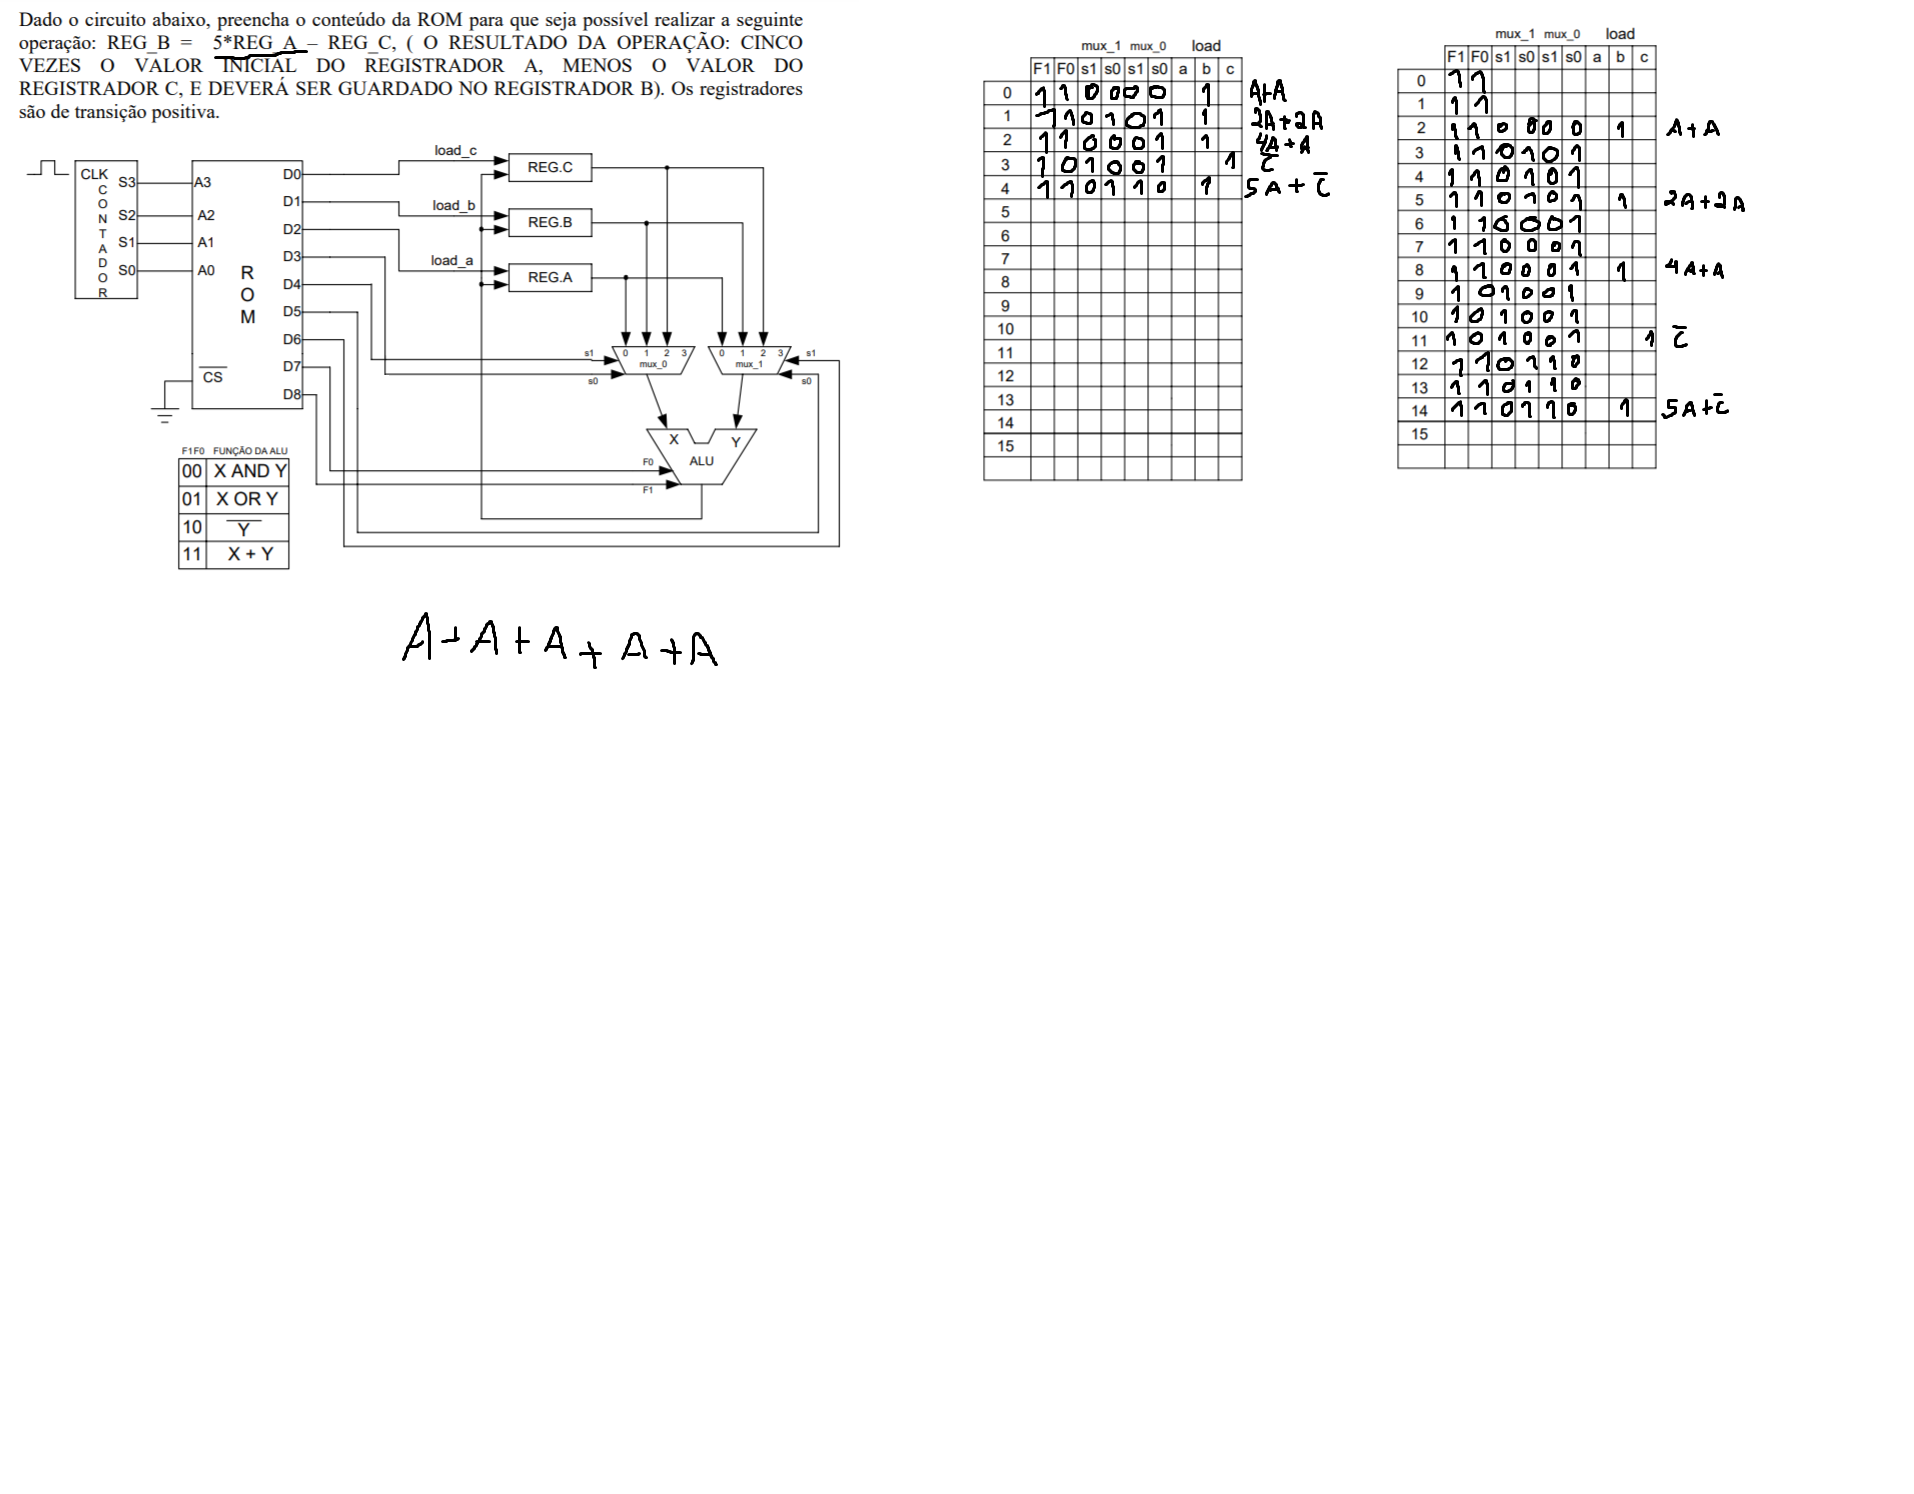 Dado o circuito abaixo, preencha o conteúdo da ROM para que seja possível realizar a seguinte
operação: REG_B = 5*REG_A – REG_C, ( O RESULTADO DA OPERAÇÃO: CINCO
VEZES O VALOR INICIAL DO REGISTRADOR A, MENOS O VALOR DO
REGISTRADOR C, E DEVERÁ SER GUARDADO NO REGISTRADOR B). Os registradores
são de transição positiva.
CLK
CONTADOR
S3
S2
S1
S0
A3
A2
A1
A0
ROM
CS
D0
D1
D2
D3
D4
D5
D6
D7
D8
load_c
REG.C
load_b
REG.B
load_a
REG.A
s1 0 1 2 3 0 1 2 3 s1
mux_0 mux_1
s0 s0
X Y
ALU
F0
F1
F1F0 FUNÇÃO DA ALU
00 X AND Y
01 X OR Y
10 Y̅
11 X + Y
A+A+A+A+A
mux_1 mux_0 load
F1 F0 s1 s0 s1 s0 a b c
0 1 1 0 0 0 0 1 A+A
1 1 1 0 1 0 1 1 2A+2A
2 1 1 0 0 0 1 1 4A+A
3 1 0 1 0 0 1 1 C̅
4 1 1 0 1 1 0 1 5A+C̅
5
6
7
8
9
10
11
12
13
14
15
mux_1 mux_0 load
F1 F0 s1 s0 s1 s0 a b c
0 1 1
1 1 1
2 1 1 0 0 0 0 1 A+A
3 1 1 0 1 0 1
4 1 1 0 1 0 1
5 1 1 0 1 0 1 1 2A+2A
6 1 1 0 0 0 1
7 1 1 0 0 0 1
8 1 1 0 0 0 1 1 4A+A
9 1 0 1 0 0 1
10 1 0 1 0 0 1
11 1 0 1 0 0 1 1 C̅
12 1 1 0 1 1 0
13 1 1 0 1 1 0
14 1 1 0 1 1 0 1 5A+C̅
15